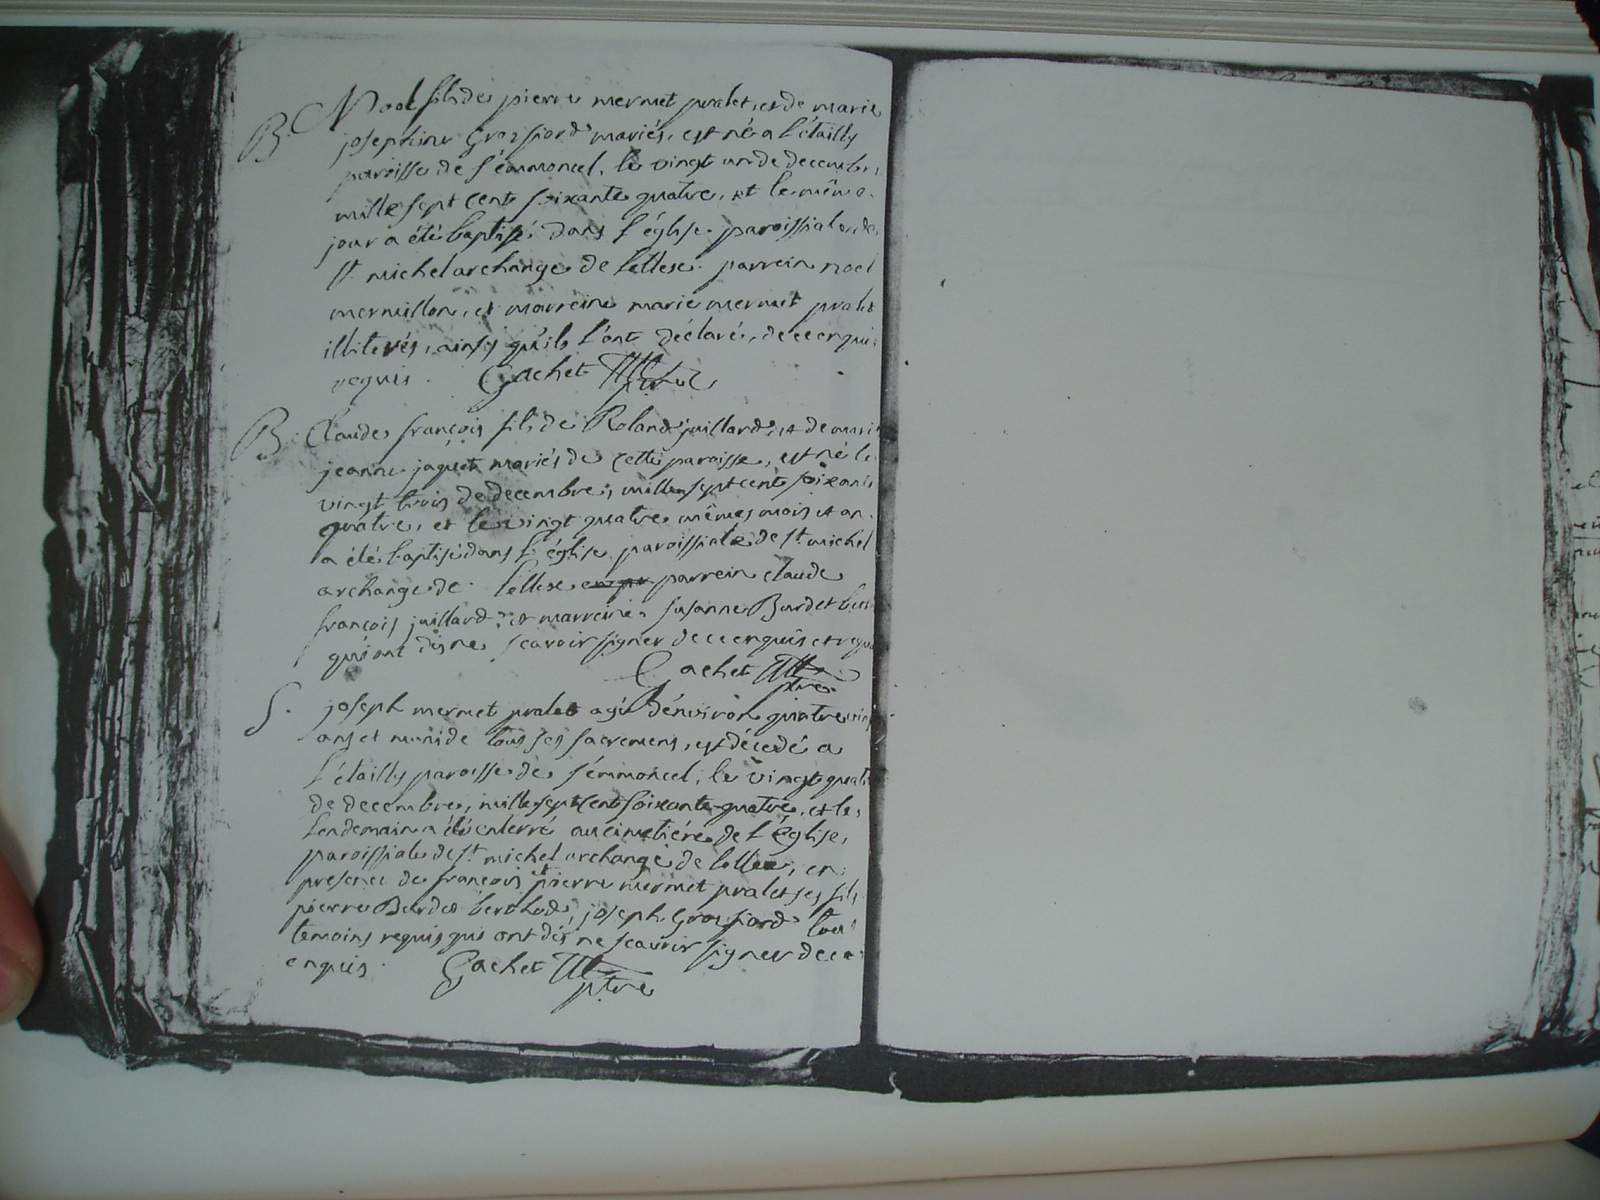 B. Noel fils de pierre mermet pralet, et de marie
josephine Grosfiord mariés, est né a l'étailly
paroisse de s'emmoncel, le vingt un de decembre
mille sept cent soixante quatre, et le même
jour a été baptisé dans l'église paroissiale de
st michel archange de lellex. parrein noel
mermillon, et marreine marie mermet pralet
illiterés, ainsy qu'ils l'ont déclaré, de ce enquis
requis. Gachet ptre
B. Claude françois fils de Roland juillard, et de marie
jeanne jaquet mariés de cette paroisse, est né le
vingt trois de decembre, mille sept cent soixante
quatre, et le vingt quatre mêmes mois et an
a été baptisé dans l'église paroissiale de st michel
archange de lellex parrein claude
françois juillard, et marreine susanne Burdet
qui ont dis ne scavoir signer de ce enquis et requis
Gachet ptre
S. joseph mermet pralet agé d'énviron quatre vingt
ans et muni de tous ses sacremens, est décedé a
l'étailly paroisse de s'emmoncel, le vingt quatre
de decembre, mille sept cent soixante quatre, et le
lendemain a été enterré au cimetiére de l'église
paroissiale de st michel archange de lellex, en
presence de françois et pierre mermet pralet ses fils
pierre Burdet berthod, joseph Grosfiord tous
temoins requis qui ont dis ne scavoir signer de ce
enquis. Gachet ptre